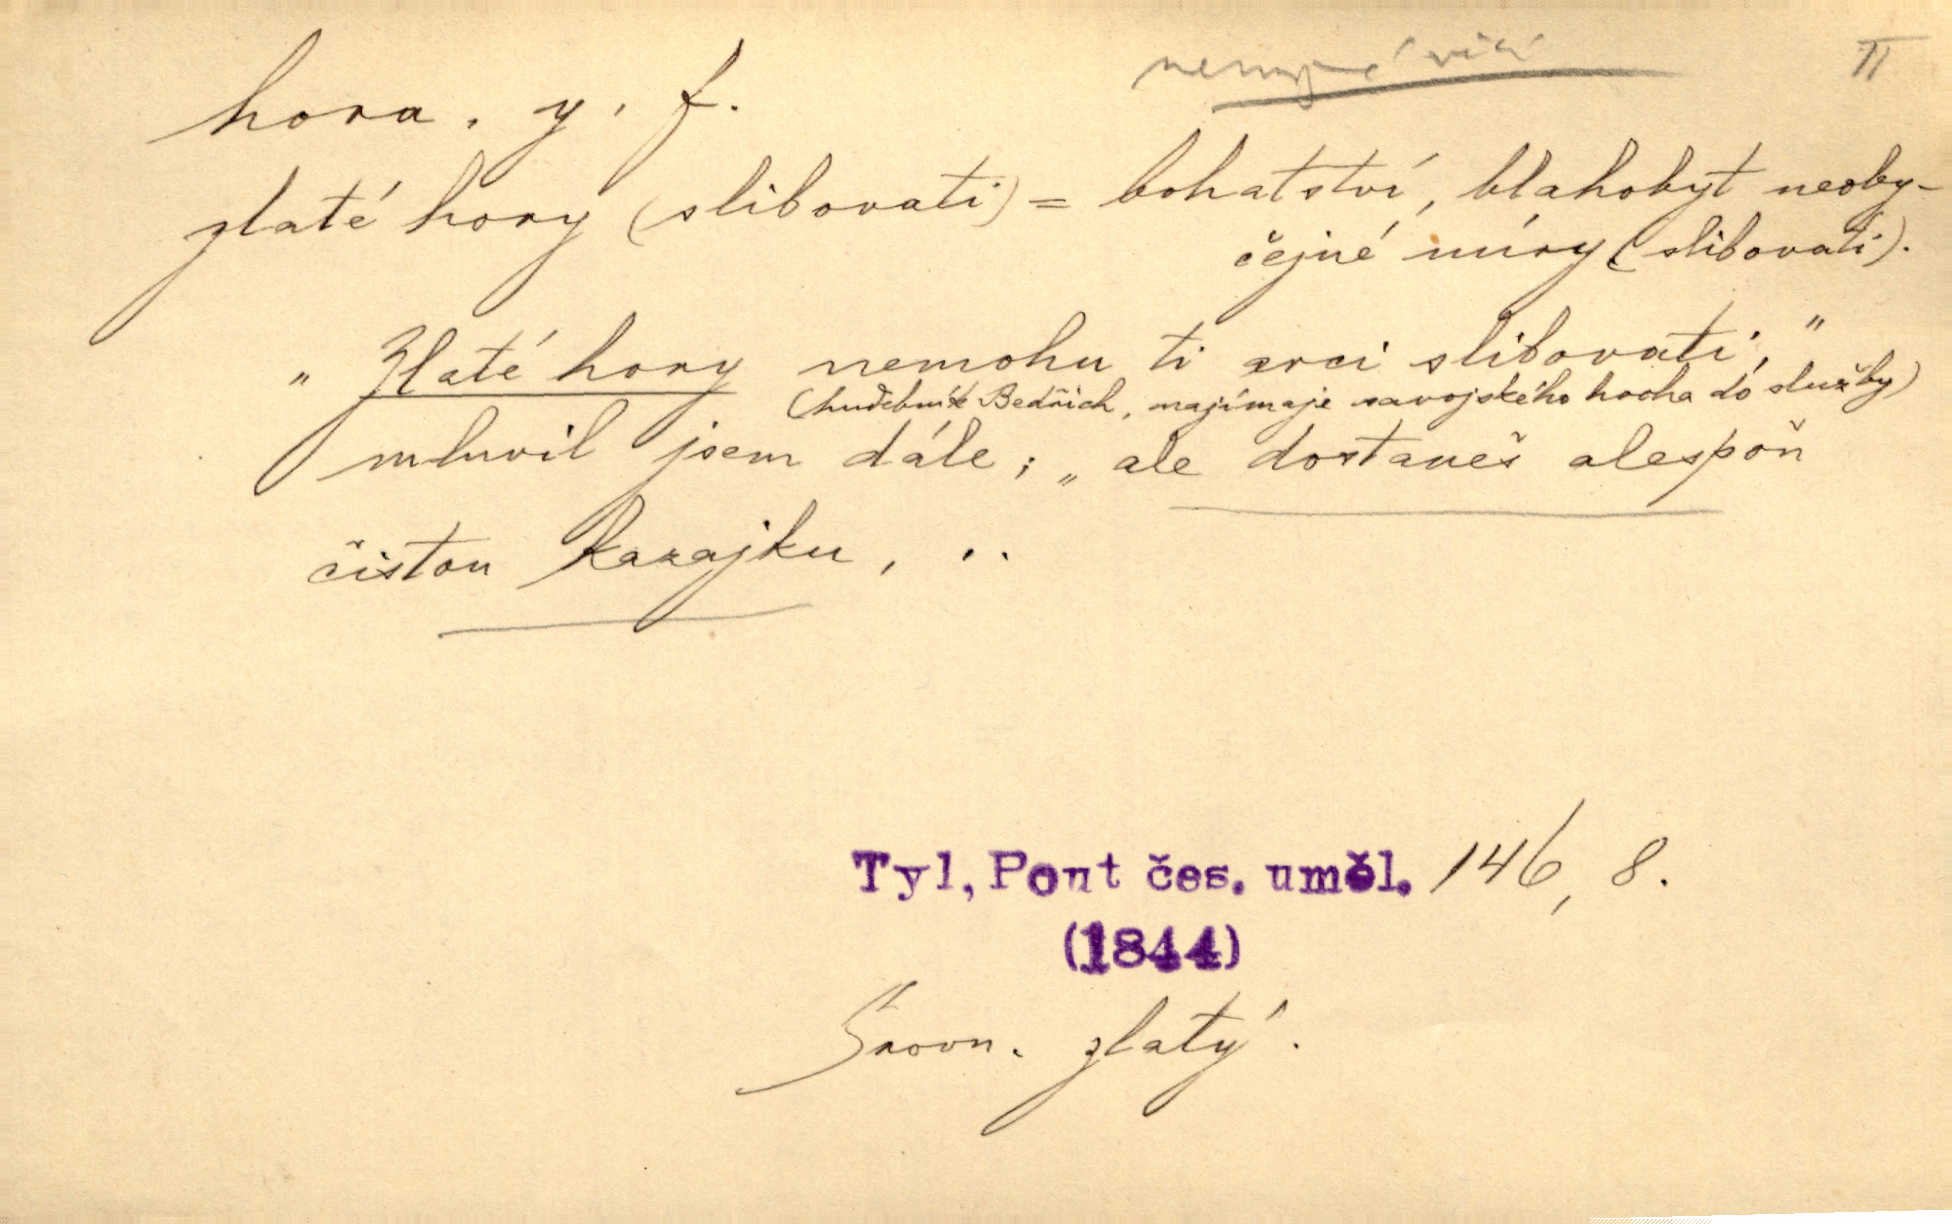 II
hora, y, f.
zlaté hory (slibovati) = bohatství, blahobyt neoby-
čejné míry (slibovati).
„Zlaté hory nemohu ti arci slibovati,"
(hudebník Bedřich, najímaje savojského hocha do služby)
mluvil jsem dále; „ale dostaneš alespoň
čistou kazajku, ..
Tyl, Pout čes. uměl. 146, 8.
(1844)
Srovn. zlatý.